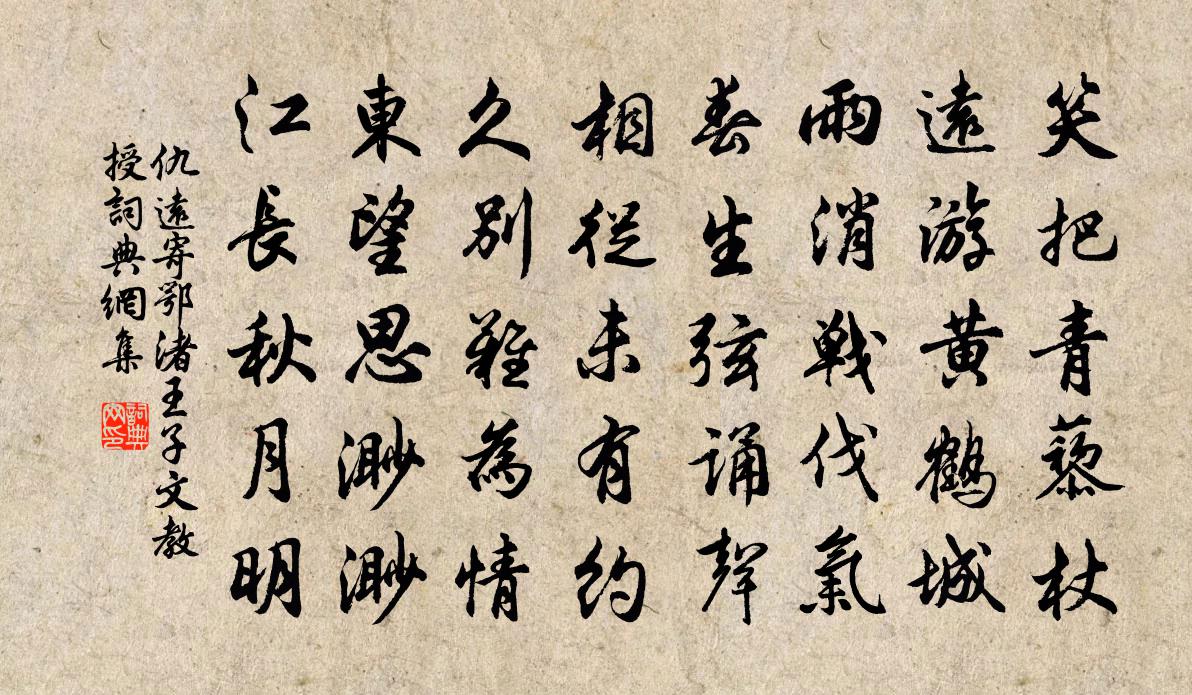 笑把青藜杖
遠游黄鶴城
雨消戰伐氣
春生弦誦聲
相從未有約
久別難為情
東望思渺渺
江長秋月明
仇遠寄鄂渚王子文教
授詞典網集
詞典網印